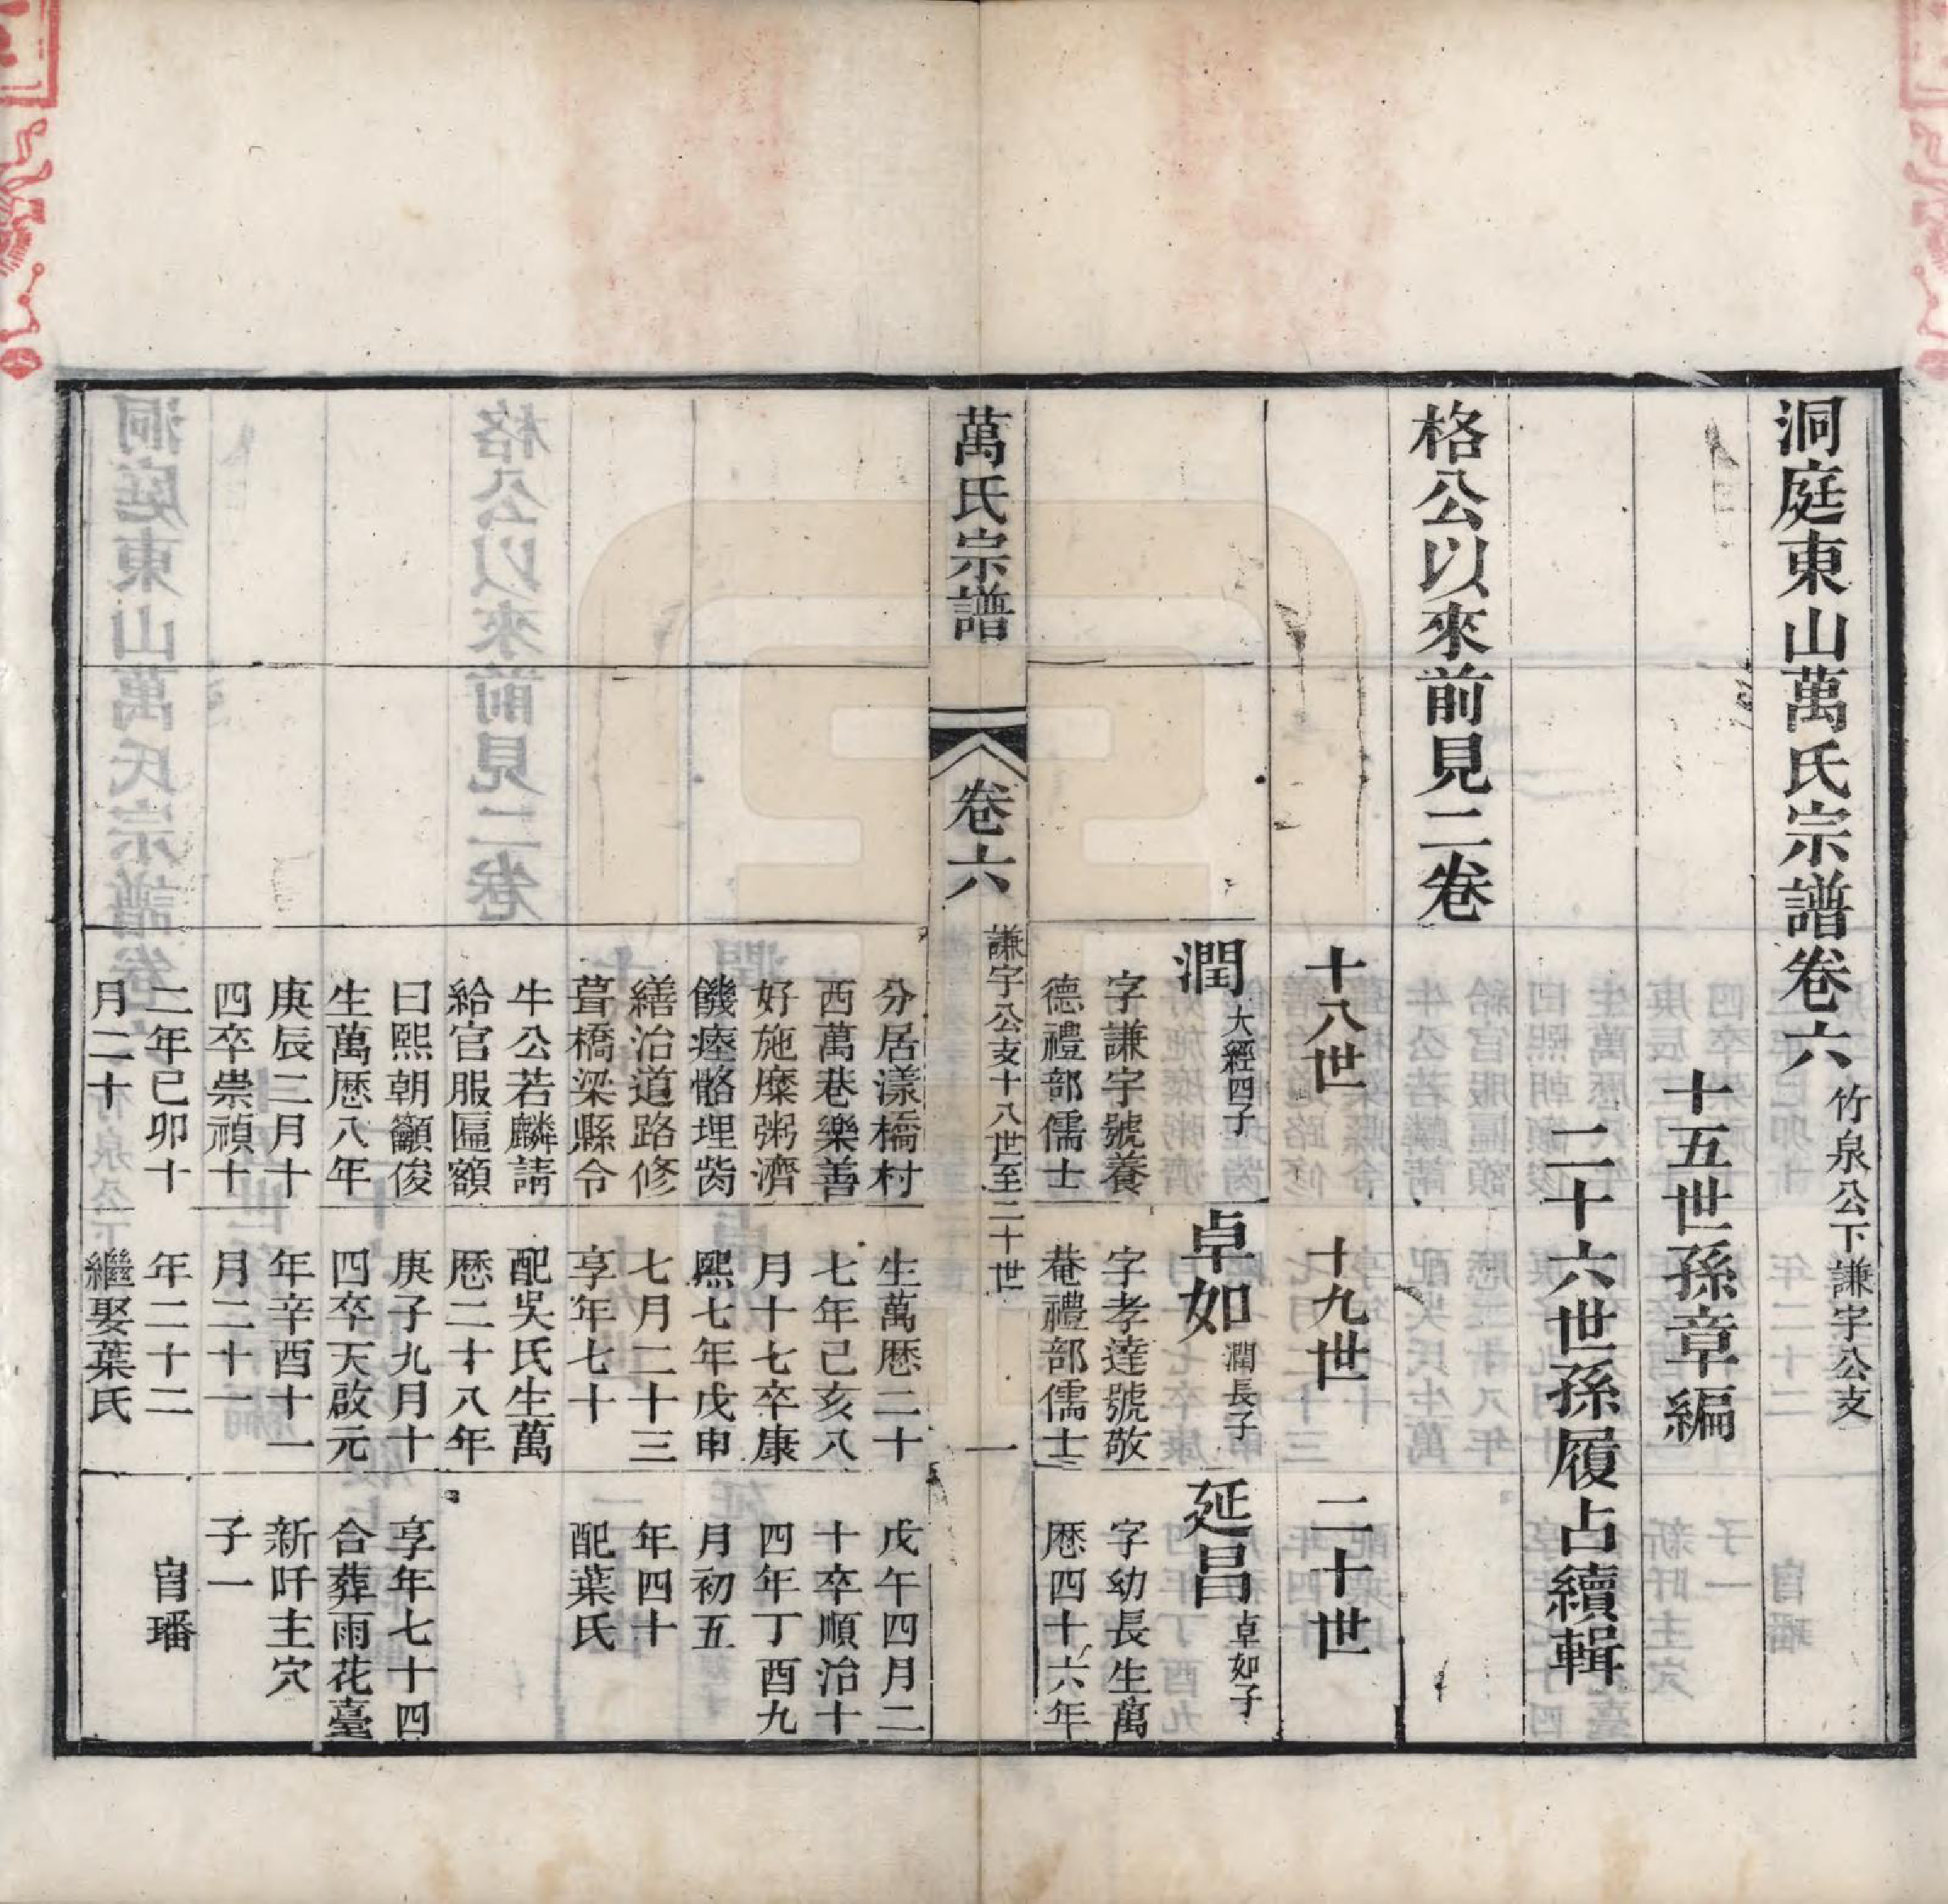 洞庭東山萬氏宗譜卷六 竹泉公下謙宇公支
十五世孫章編
二十六世孫履占續輯
格公以來前見二卷
十八世
十九世
二十世
潤 大經四子
字謙宇號養
德禮部儒士
分居漾橋村
西萬巷樂善
好施糜粥濟
饑瘞骼埋胔
繕治道路修
葺橋梁縣令
牛公若麟請
給官服匾額
曰熙朝籲俊
生萬歷八年
庚辰二月十
四卒崇禎十
二年己卯十
月二十
卓如 潤長子
字孝達號敬
菴禮部儒士
生萬歷二十
七年己亥八
月十七卒康
熙七年戊申
七月二十三
享年七十
配吳氏生萬
歷二十八年
庚子九月十
四卒天啟元
年辛酉十一
月二十一
年二十二
繼娶葉氏
延昌 卓如子
字幼長生萬
歷四十六年
戊午四月二
十卒順治十
四年丁酉九
月初五
年四十
配葉氏
享年七十四
合葬雨花臺
新阡主穴
子一
璠
萬氏宗譜
卷六
謙宇公支十八世至二十世
一